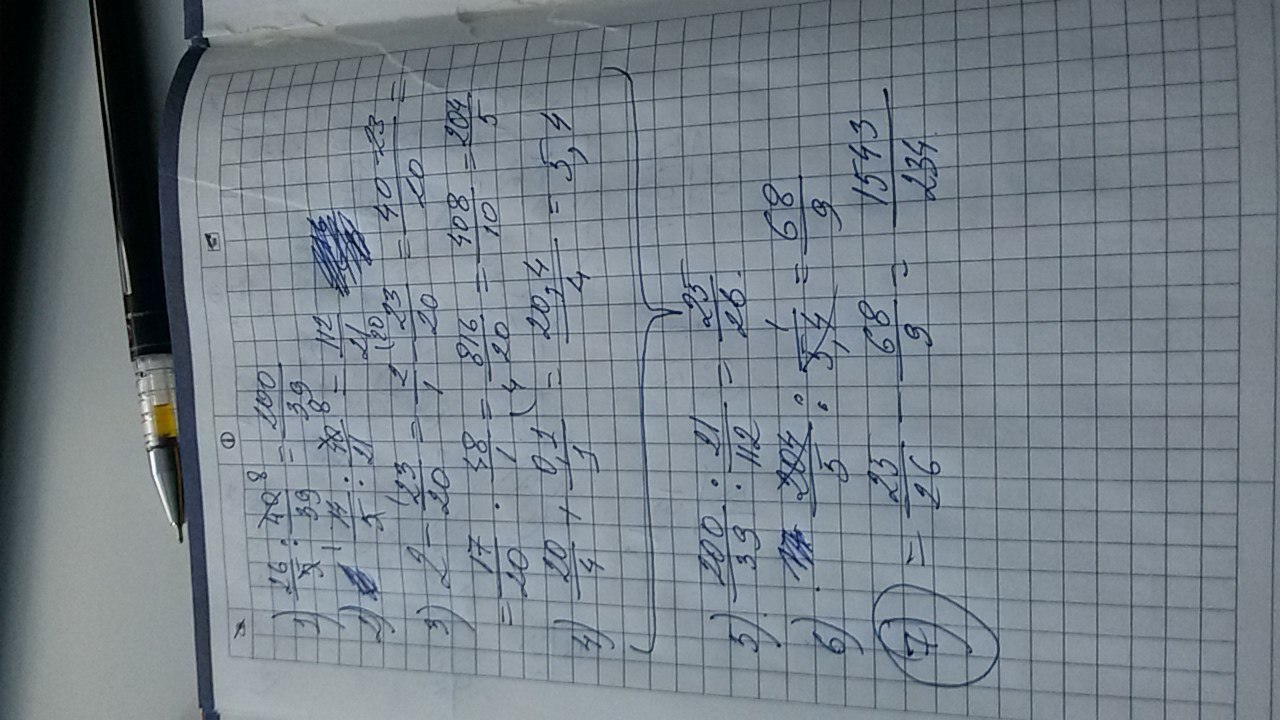 1) 26/5 · 40⁸/39 = 200/39
2) 14/5 : 40 8/21 = 112/21
3) 2 - 23/20 = 2/1 (20 - 23/20 = 40-23/20 =
= 17/20 · 48/1 = 816/20 = 408/10 = 204/5
4) 20/4 + 0,1/1 (4 = 20,4/4 = 5,4
5) 200/39 : 21/112 = 25/26.
6) 204/5 : 1/5,4 = 68/9
7) = 25/26 - 68/9 = 1543/234.